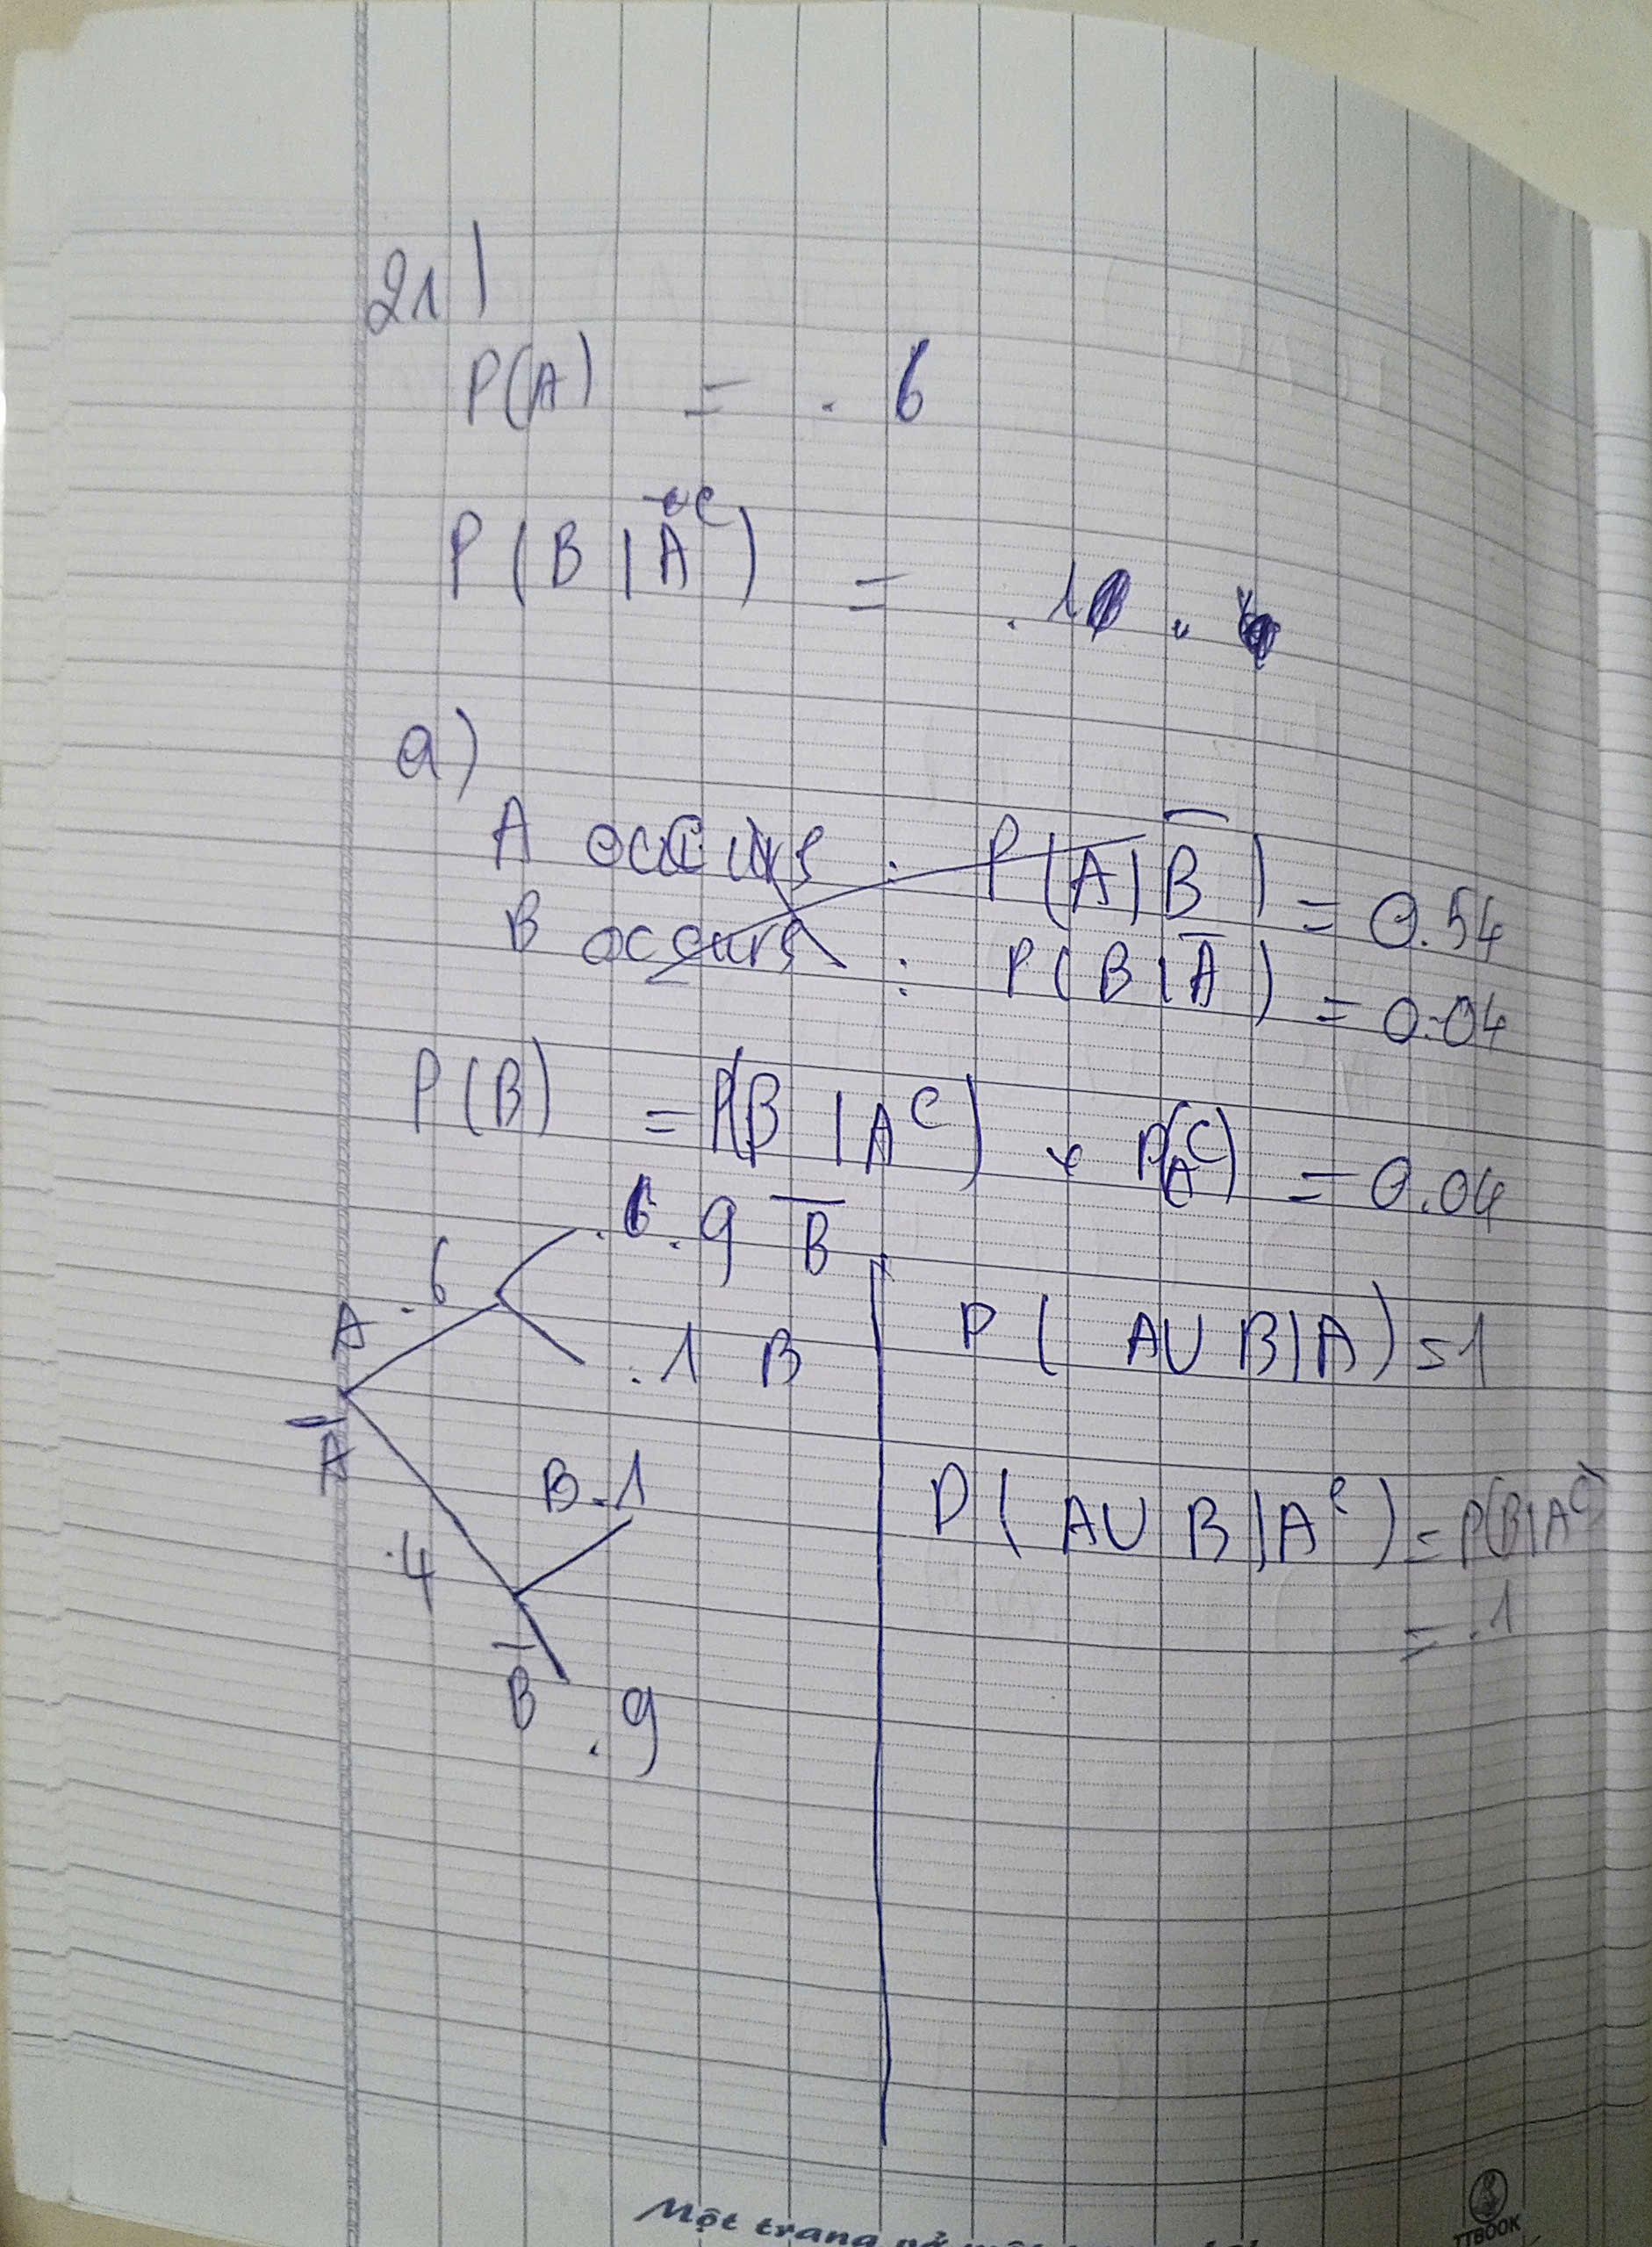 21)
P(A) = .6
P(B|A^C) = .1
a)
A occurs : P(A|B̅) = 0.54
B occurs : P(B|A̅) = 0.04
P(B) = P(B|A^C) × P(A^C) = 0.04
A .6
.9 B̅
.1 B
A̅
.4
B .1
B̅ .9
P(A∪B|A) = 1
P(A∪B|A^C) = P(B|A^C)
= .1
Một trang
TTBOOK